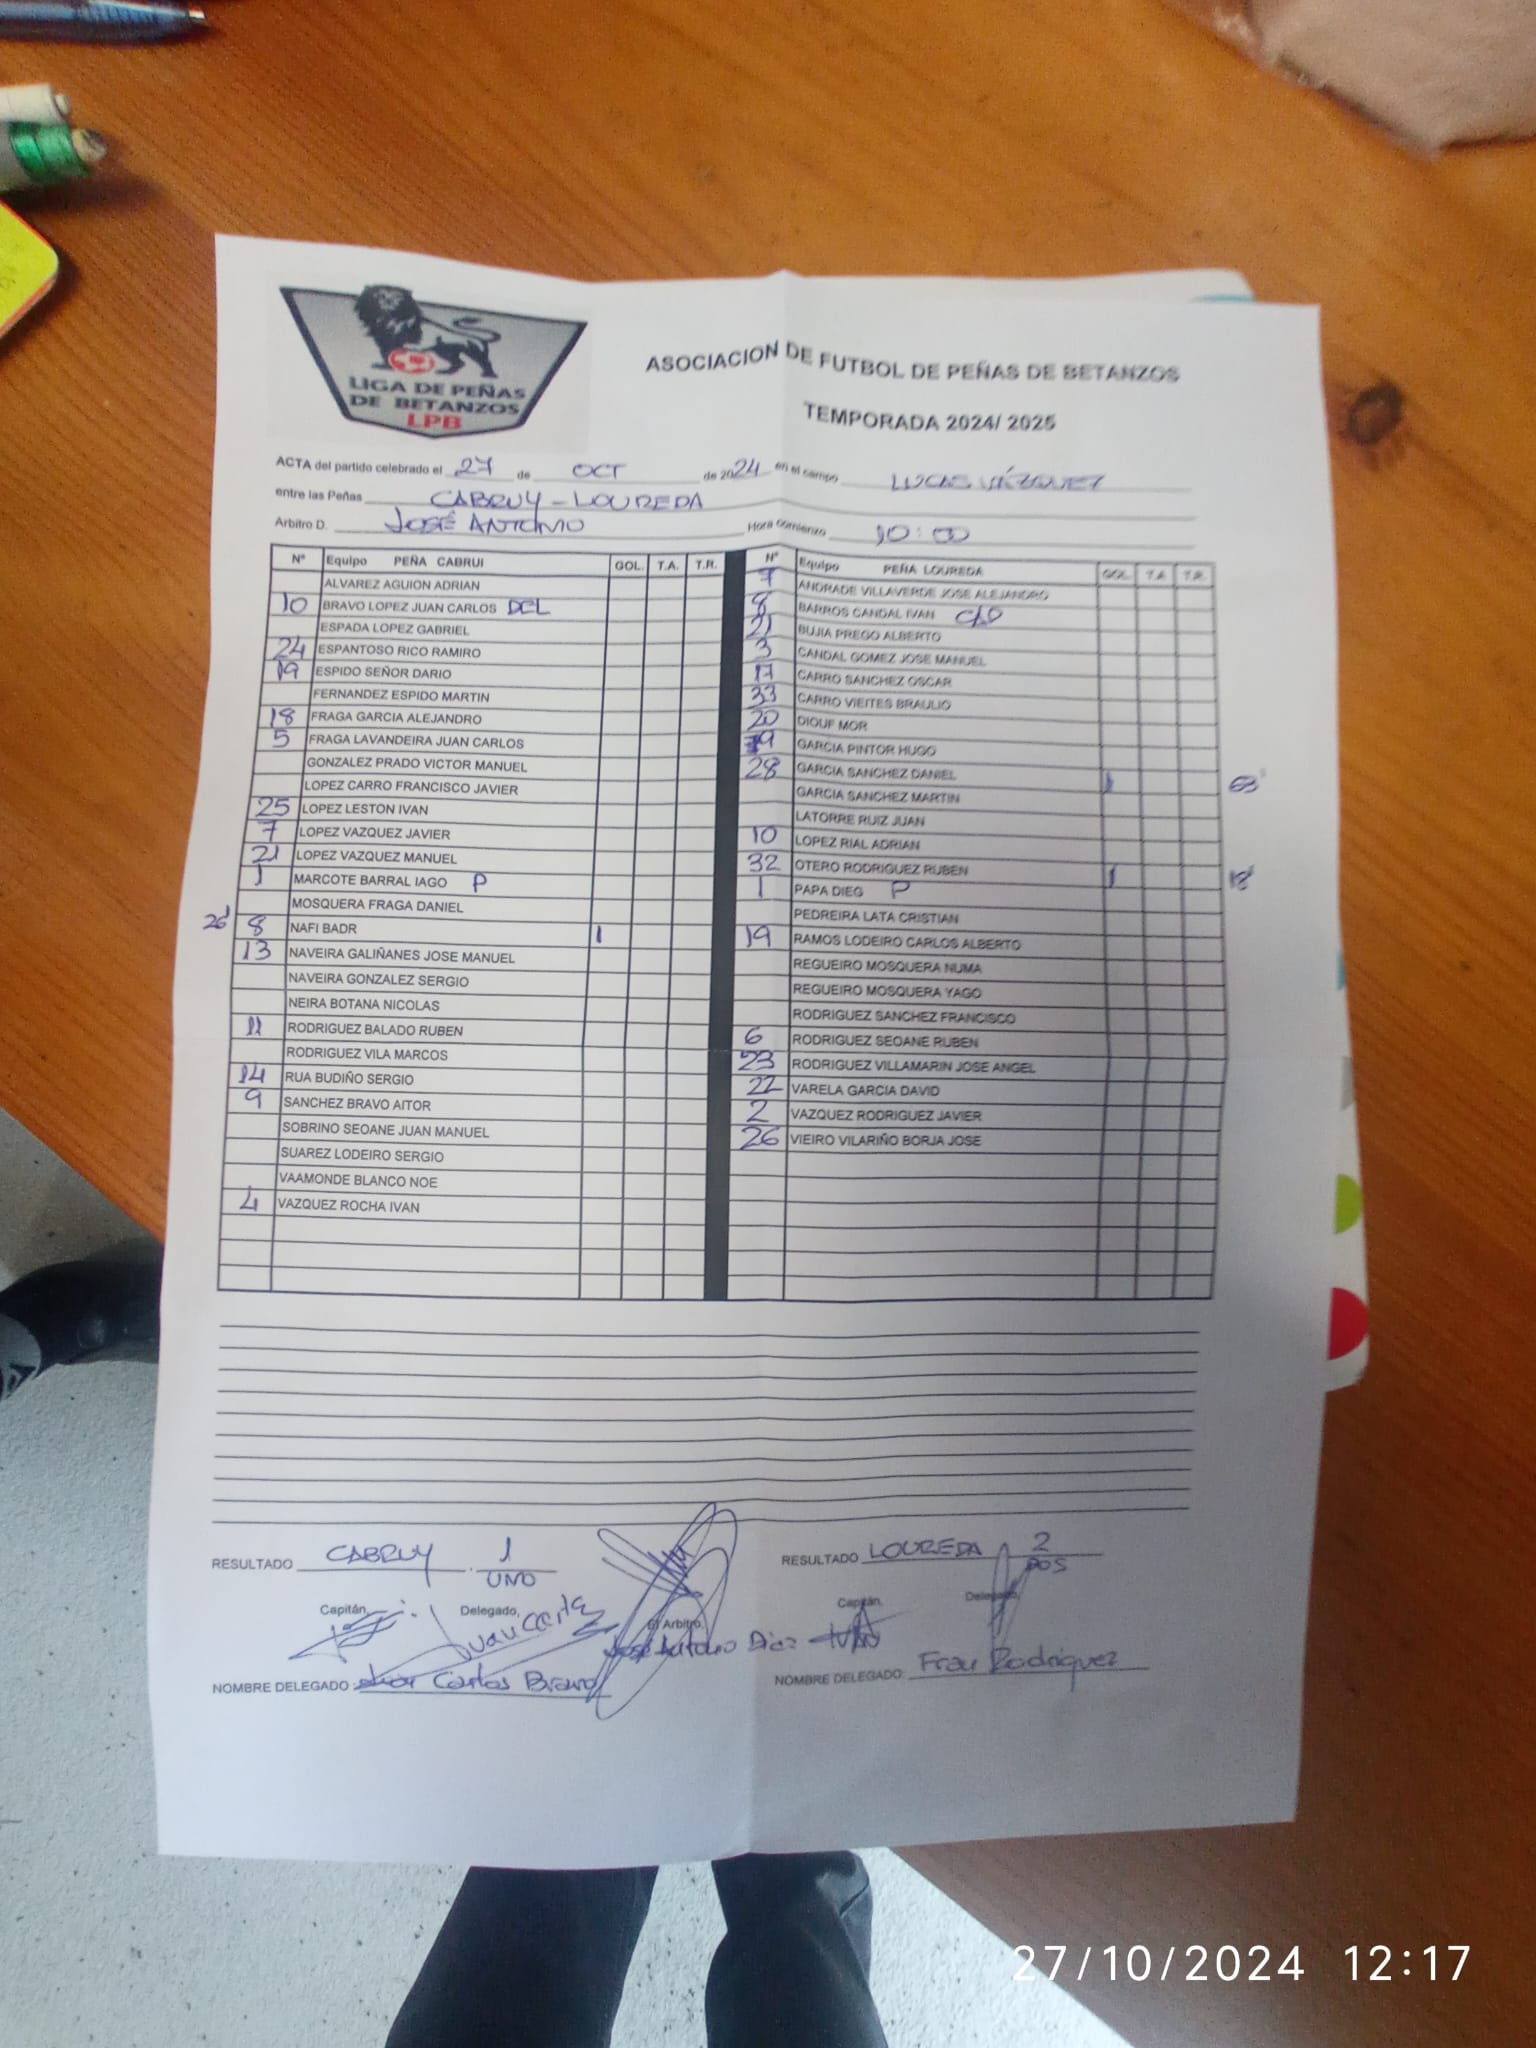 LIGA DE PEÑAS
DE BETANZOS
LPB
ASOCIACION DE FUTBOL DE PEÑAS DE BETANZOS
TEMPORADA 2024/ 2025
ACTA del partido celebrado el 27 de OCT de 2024 en el campo LUCAS VÁZQUEZ
entre las Peñas CABRUY - LOUREDA
Arbitro D. JOSÉ ANTONIO Hora comienzo 10:00
Nº Equipo PEÑA CABRUI GOL. T.A. T.R.
ALVAREZ AGUION ADRIAN
10 BRAVO LOPEZ JUAN CARLOS DEL
ESPADA LOPEZ GABRIEL
24 ESPANTOSO RICO RAMIRO
19 ESPIDO SEÑOR DARIO
FERNANDEZ ESPIDO MARTIN
18 FRAGA GARCIA ALEJANDRO
5 FRAGA LAVANDEIRA JUAN CARLOS
GONZALEZ PRADO VICTOR MANUEL
LOPEZ CARRO FRANCISCO JAVIER
25 LOPEZ LESTON IVAN
7 LOPEZ VAZQUEZ JAVIER
21 LOPEZ VAZQUEZ MANUEL
1 MARCOTE BARRAL IAGO P
MOSQUERA FRAGA DANIEL
26' 8 NAFI BADR 1
13 NAVEIRA GALIÑANES JOSE MANUEL
NAVEIRA GONZALEZ SERGIO
NEIRA BOTANA NICOLAS
11 RODRIGUEZ BALADO RUBEN
RODRIGUEZ VILA MARCOS
14 RUA BUDIÑO SERGIO
9 SANCHEZ BRAVO AITOR
SOBRINO SEOANE JUAN MANUEL
SUAREZ LODEIRO SERGIO
VAAMONDE BLANCO NOE
4 VAZQUEZ ROCHA IVAN
Nº Equipo PEÑA LOUREDA GOL. T.A. T.R.
7 ANDRADE VILLAVERDE JOSE ALEJANDRO
8 BARROS CANDAL IVAN CAP
21 BUJIA PREGO ALBERTO
3 CANDAL GOMEZ JOSE MANUEL
17 CARRO SANCHEZ OSCAR
33 CARRO VIEITES BRAULIO
20 DIOUF MOR
GARCIA PINTOR HUGO
28 GARCIA SANCHEZ DANIEL 1
GARCIA SANCHEZ MARTIN
LATORRE RUIZ JUAN
10 LOPEZ RIAL ADRIAN
32 OTERO RODRIGUEZ RUBEN 1
1 PAPA DIEG P
PEDREIRA LATA CRISTIAN
19 RAMOS LODEIRO CARLOS ALBERTO
REGUEIRO MOSQUERA NUMA
REGUEIRO MOSQUERA YAGO
RODRIGUEZ SANCHEZ FRANCISCO
6 RODRIGUEZ SEOANE RUBEN
23 RODRIGUEZ VILLAMARIN JOSE ANGEL
22 VARELA GARCIA DAVID
2 VAZQUEZ RODRIGUEZ JAVIER
26 VIEIRO VILARIÑO BORJA JOSE
RESULTADO CABRUY 1
UNO
RESULTADO LOUREDA 2
DOS
Capitán, Delegado, El Arbitro, Capitán, Delegado,
Juan Carlos
José Antonio Diaz
NOMBRE DELEGADO Juan Carlos Bravo
NOMBRE DELEGADO: Fran Rodriguez
27/10/2024 12:17